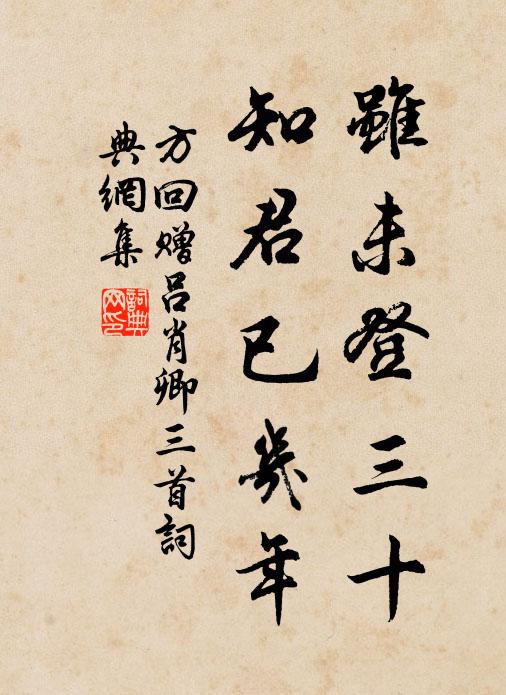 雖未登三十
知君已幾年
方回贈吕肖卿三首詞
典網集
詞典
网印